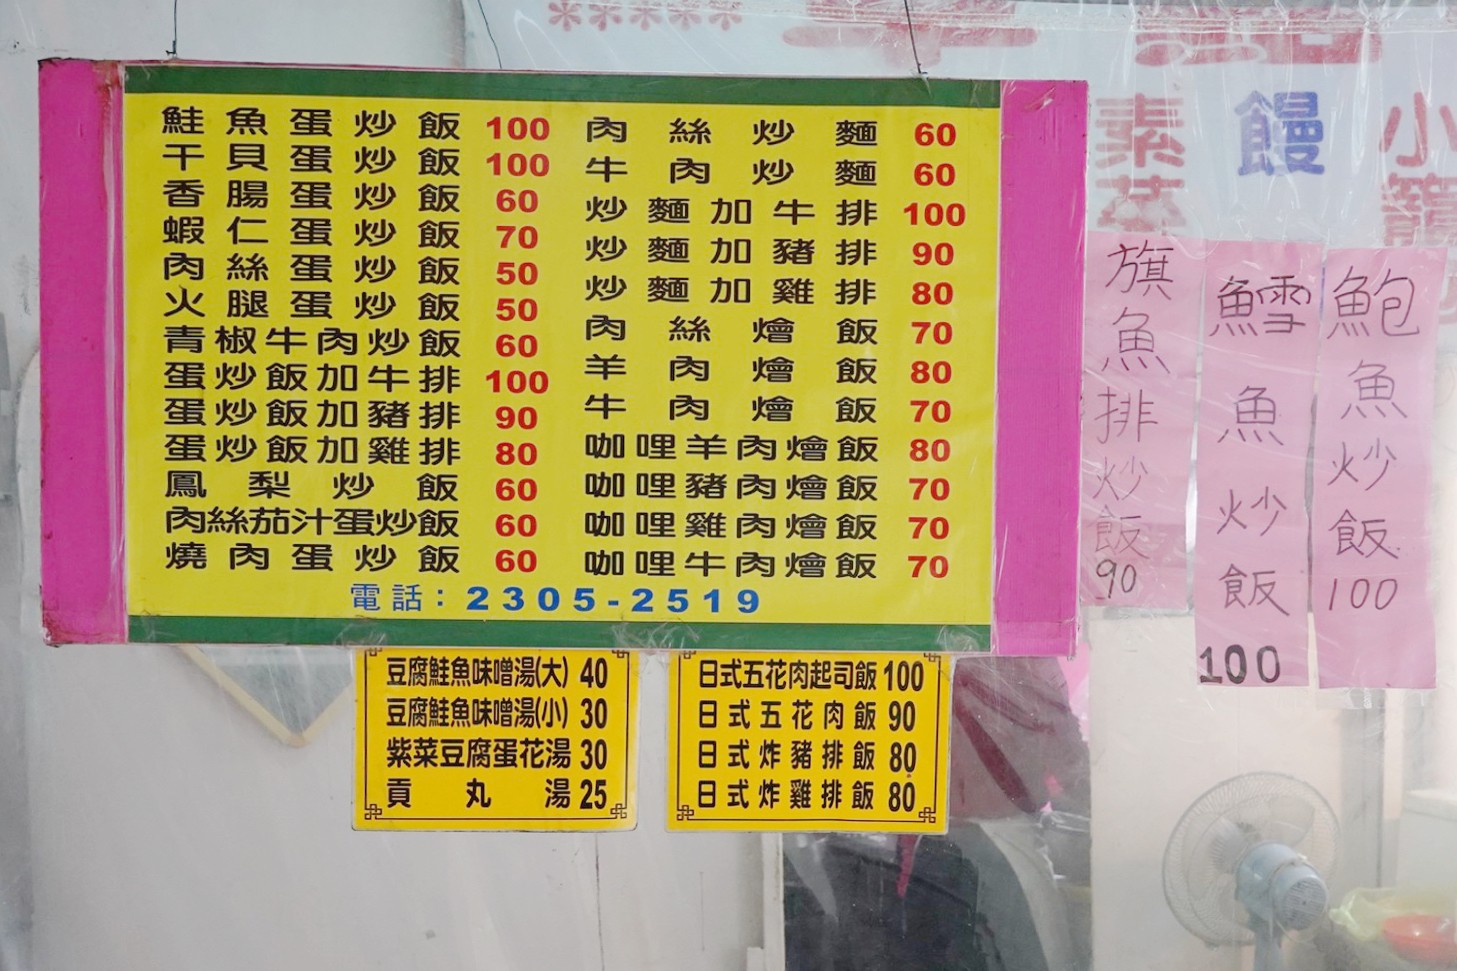 鮭魚蛋炒飯 100
干貝蛋炒飯 100
香腸蛋炒飯 60
蝦仁蛋炒飯 70
肉絲蛋炒飯 50
火腿蛋炒飯 50
青椒牛肉炒飯 60
蛋炒飯加牛排 100
蛋炒飯加豬排 90
蛋炒飯加雞排 80
鳳梨炒飯 60
肉絲茄汁蛋炒飯 60
燒肉蛋炒飯 60
肉絲炒麵 60
牛肉炒麵 60
炒麵加牛排 100
炒麵加豬排 90
炒麵加雞排 80
肉絲燴飯 70
羊肉燴飯 80
牛肉燴飯 70
咖哩羊肉燴飯 80
咖哩豬肉燴飯 70
咖哩雞肉燴飯 70
咖哩牛肉燴飯 70
電話：2305-2519
豆腐鮭魚味噌湯(大) 40
豆腐鮭魚味噌湯(小) 30
紫菜豆腐蛋花湯 30
貢丸湯 25
日式五花肉起司飯 100
日式五花肉飯 90
日式炸豬排飯 80
日式炸雞排飯 80
素菜
饅
小籠
旗魚排炒飯 90
鱈魚炒飯 100
鮑魚炒飯 100